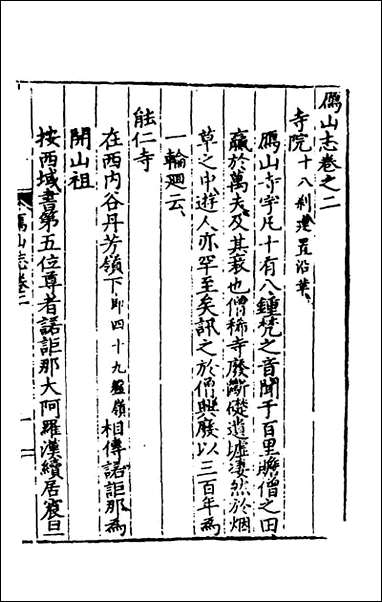 鴈山志卷之二
寺院十八刹建置沿革
鴈山寺宇凡十有八鍾梵之音聞于百里贍僧之田
贏於萬夫及其衰也僧稀寺廢斷礎遺墟凄然於烟
草之中遊人亦罕至矣訊之於僧興廢以三百年為
一輪廻云
能仁寺
在西内谷丹芳嶺下即四十九盤嶺相傳諾詎那為
開山祖
按西域書第五位尊者諾詎那大阿羅漢續居震旦
鴈山志卷二
一